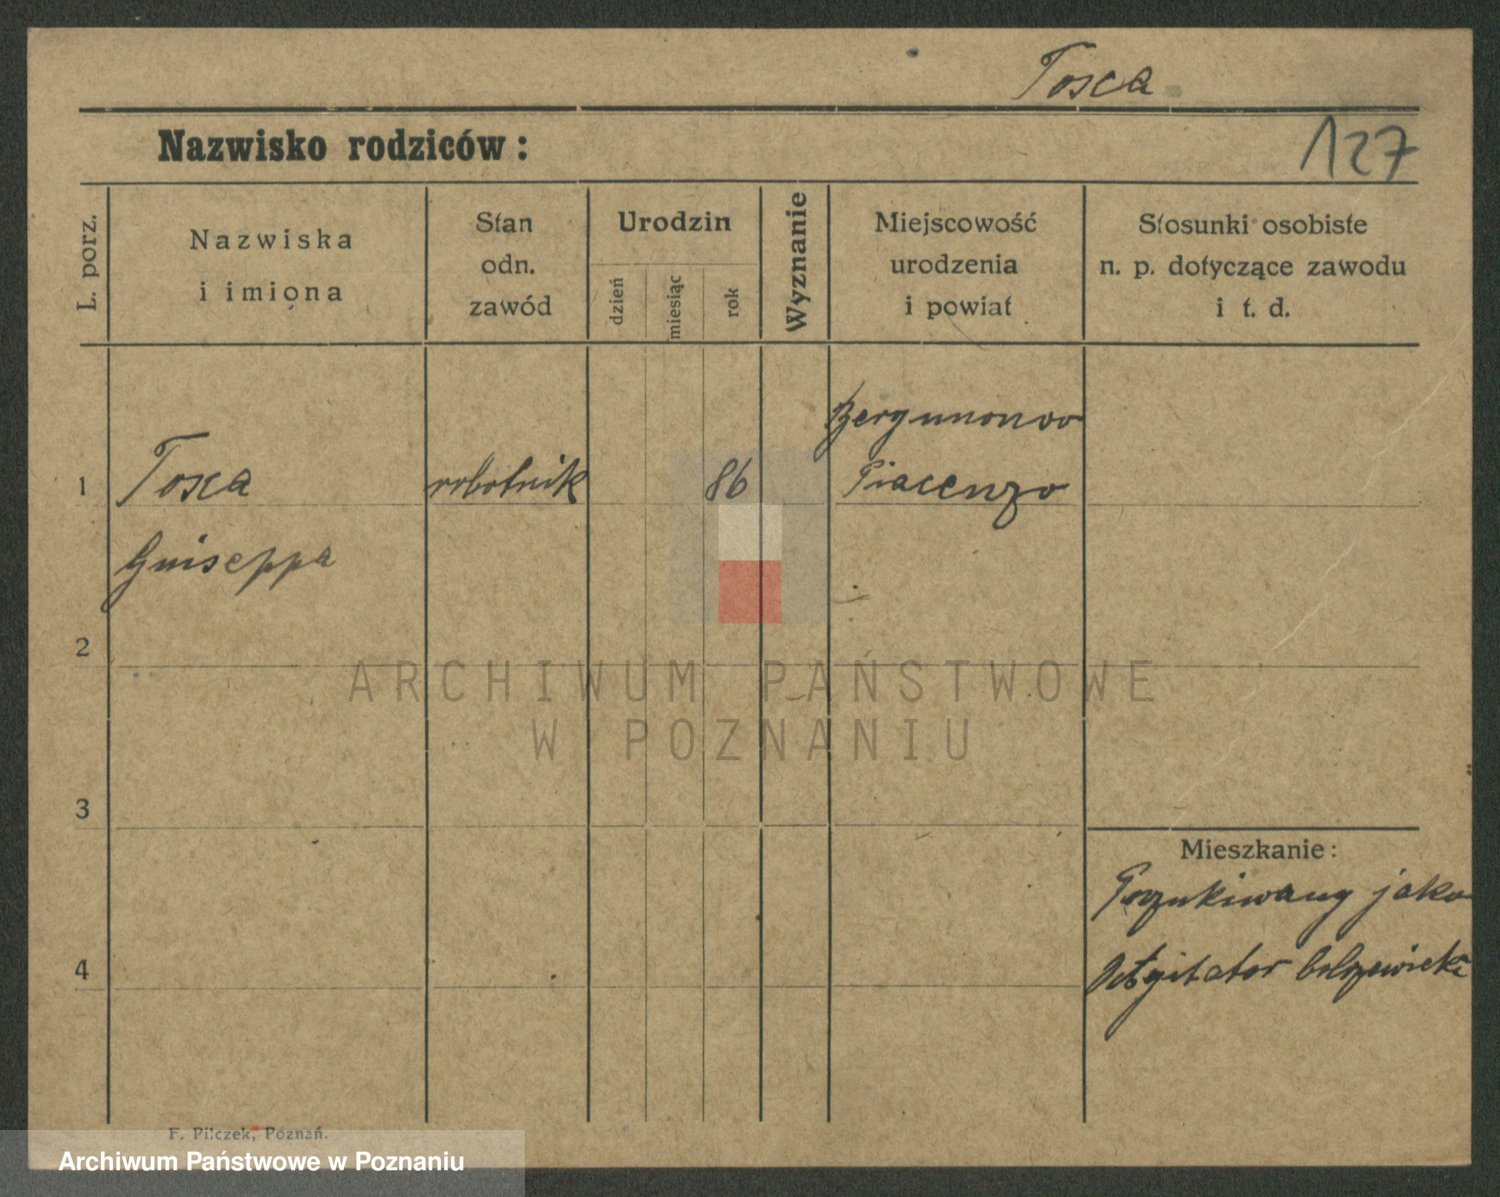 Tosca
Nazwisko rodziców:
127
L. porz.
Nazwiska
i imiona
Stan
odn.
zawód
Urodzin
dzień
miesiąc
rok
Wyznanie
Miejscowość
urodzenia
i powiat
Stosunki osobiste
n. p. dotyczące zawodu
i t. d.
Bergunonovo
1
Tosca
robotnik
86
Piacenzo
Guiseppa
2
ARCHIWUM PAŃSTWOWE
W POZNANIU
3
Mieszkanie:
Poszukiwany jako
Agitator bolszewicki
4
F. Pilczek, Poznań.
Archiwum Państwowe w Poznaniu